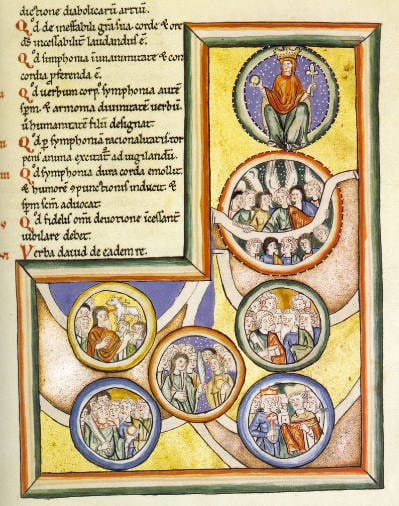 dictione diabolicarum artium.
Qd de ineffabili gra sua corde & ore
ds incessabilit laudandus ē.
Qd simphonia in unanimitate & con
cordia pferenda ē.
Qd uerbum corp' symphonia aute
spm & armonia diuinitate uerbū
ū humanitate filii designat.
Qd p symphoniā racionalitatis tor
pens anima excitat ad uigilandū
Qd symphonia dura corda emollit
& humore cpunctionis inducit &
spm scm aduocat.
Qd fidelis omi deuotione icessant
iubilare debet.
Verba dauid de eadem re.